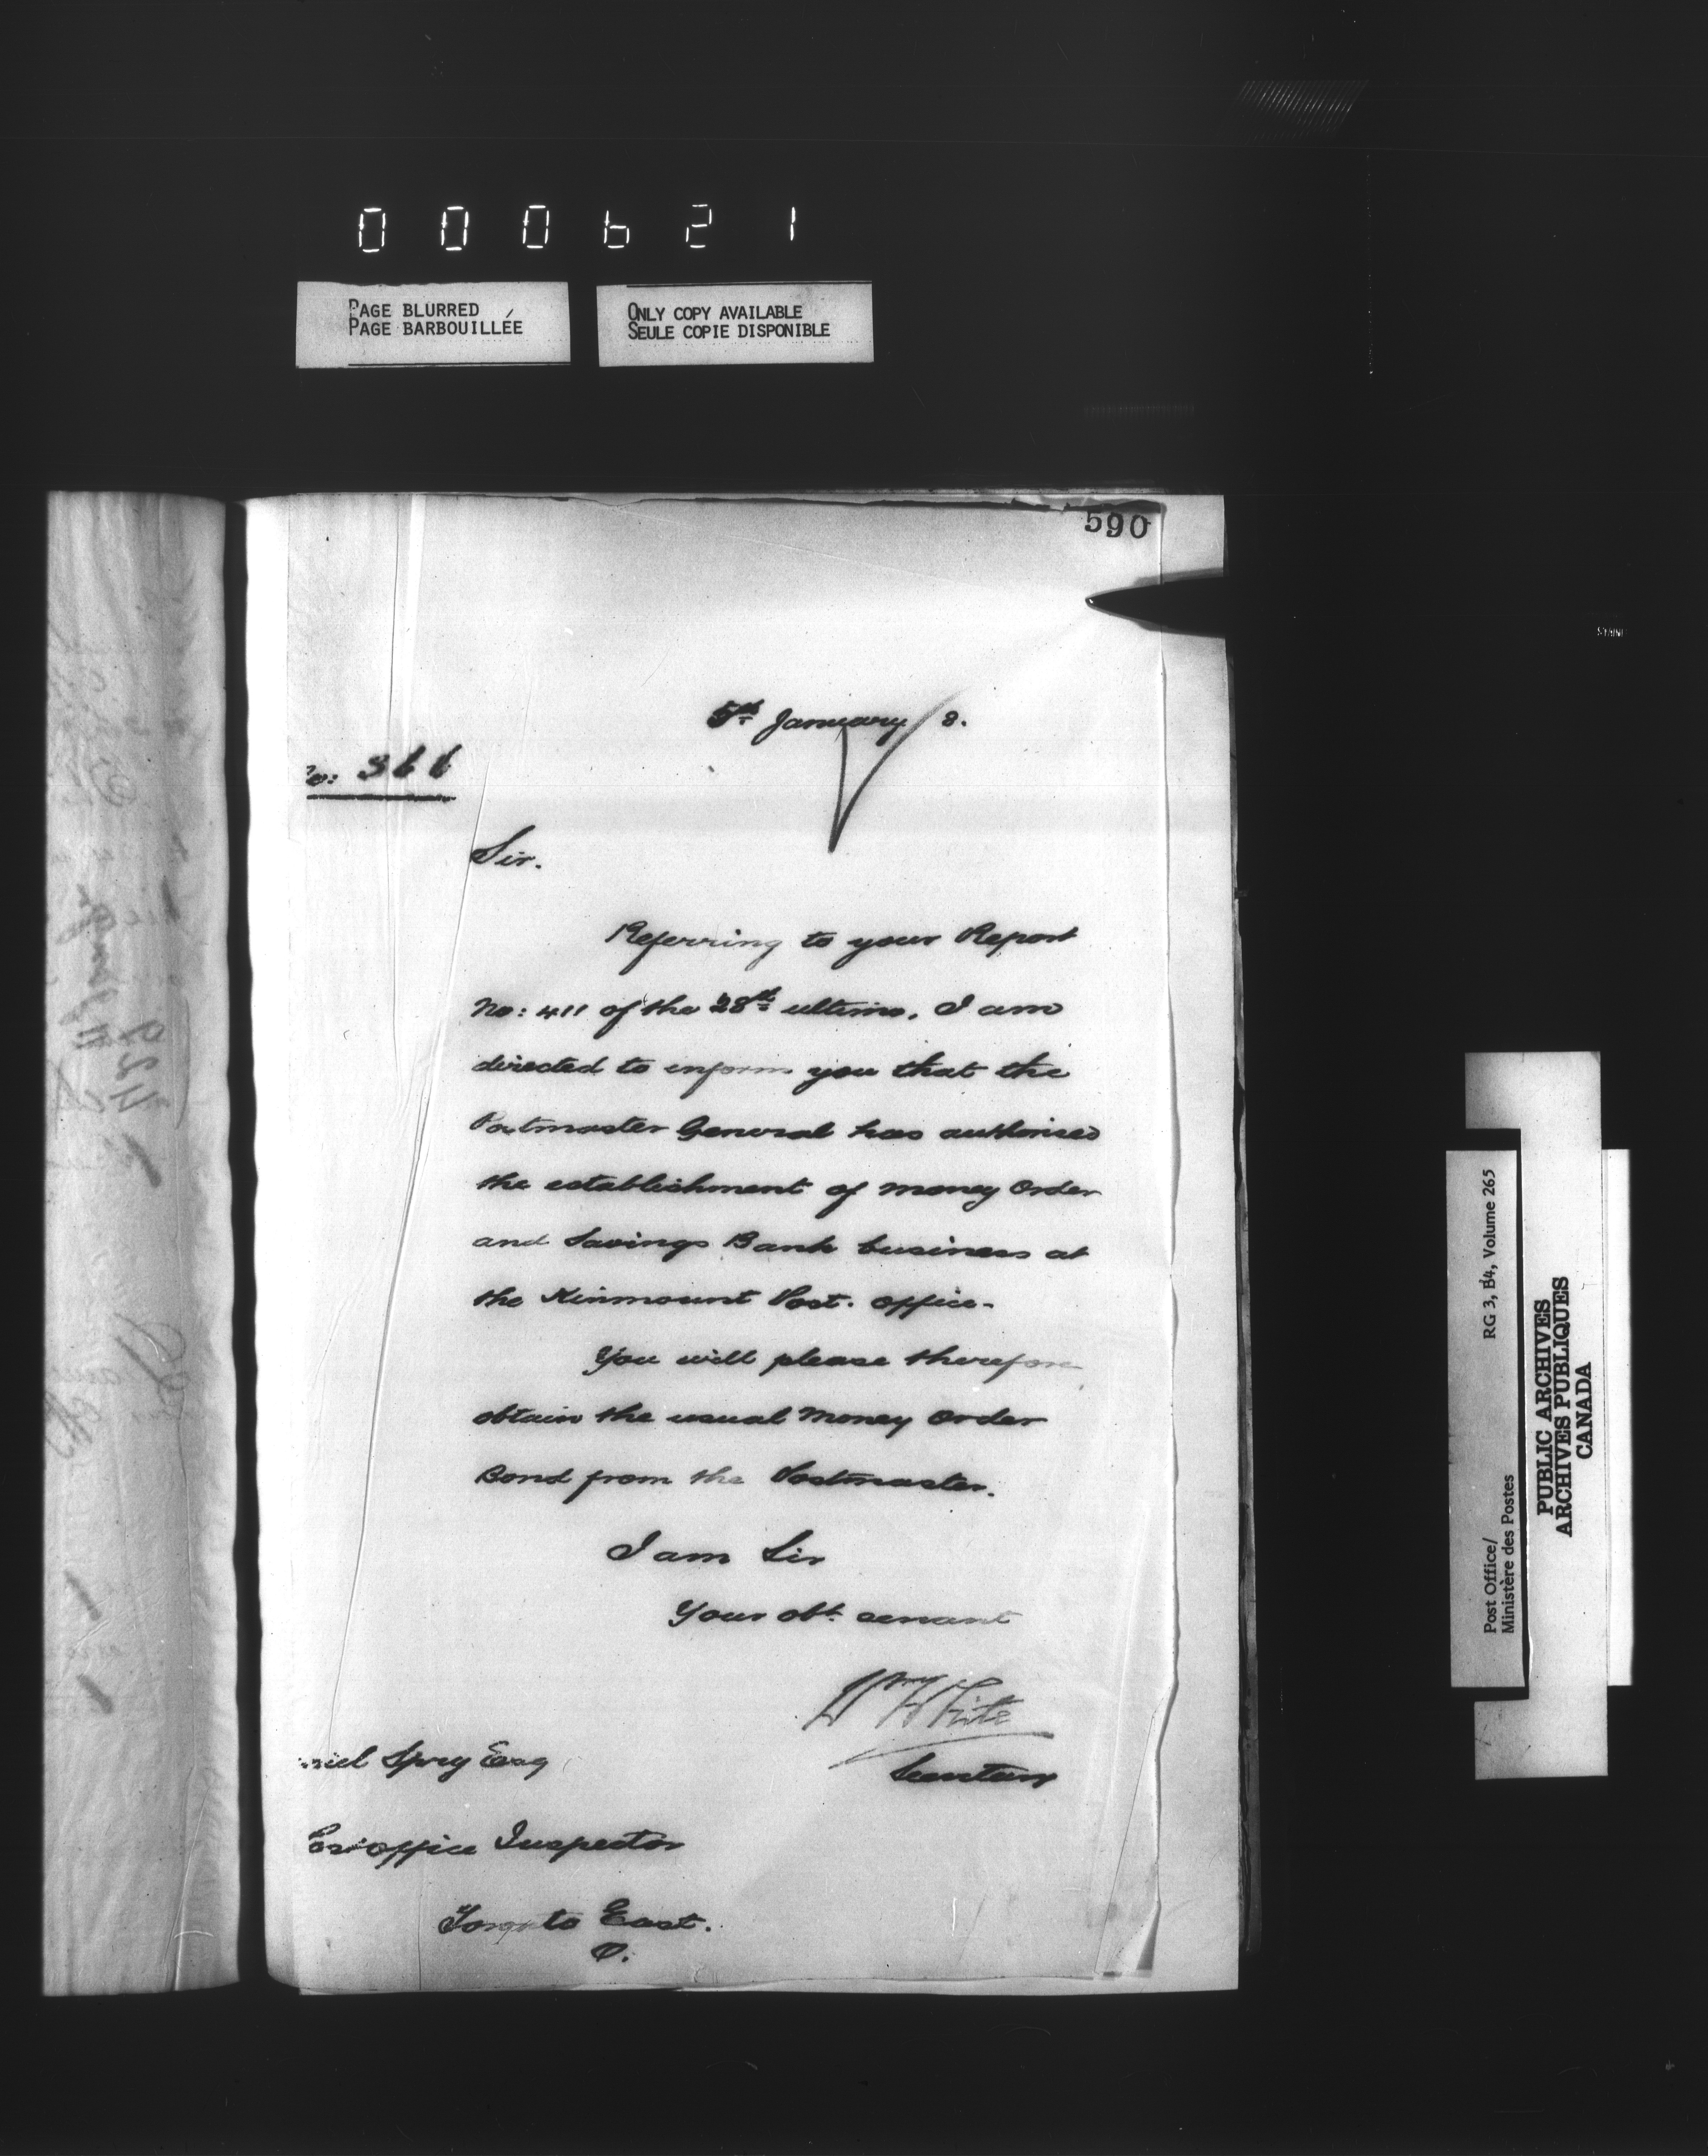 000621
PAGE BLURRED
PAGE BARBOUILLÉE
ONLY COPY AVAILABLE
SEULE COPIE DISPONIBLE
590
5th January / 8.
No: 366
Sir.
Referring to your Report
No: 411 of the 28th ultimo, I am
directed to inform you that the
Postmaster General has authorised
the establishment of money Order
and Savings Bank business at
the Kinmount Post. Office.
You will please therefore
obtain the usual Money Order
Bond from the Postmaster.
I am Sir
Your obt. servant
Wm White
Secretary
niel Spry Esq
Post office Inspector
Toronto East.
O.
Post Office/
Ministère des Postes
RG 3, B4, Volume 265
PUBLIC ARCHIVES
ARCHIVES PUBLIQUES
CANADA